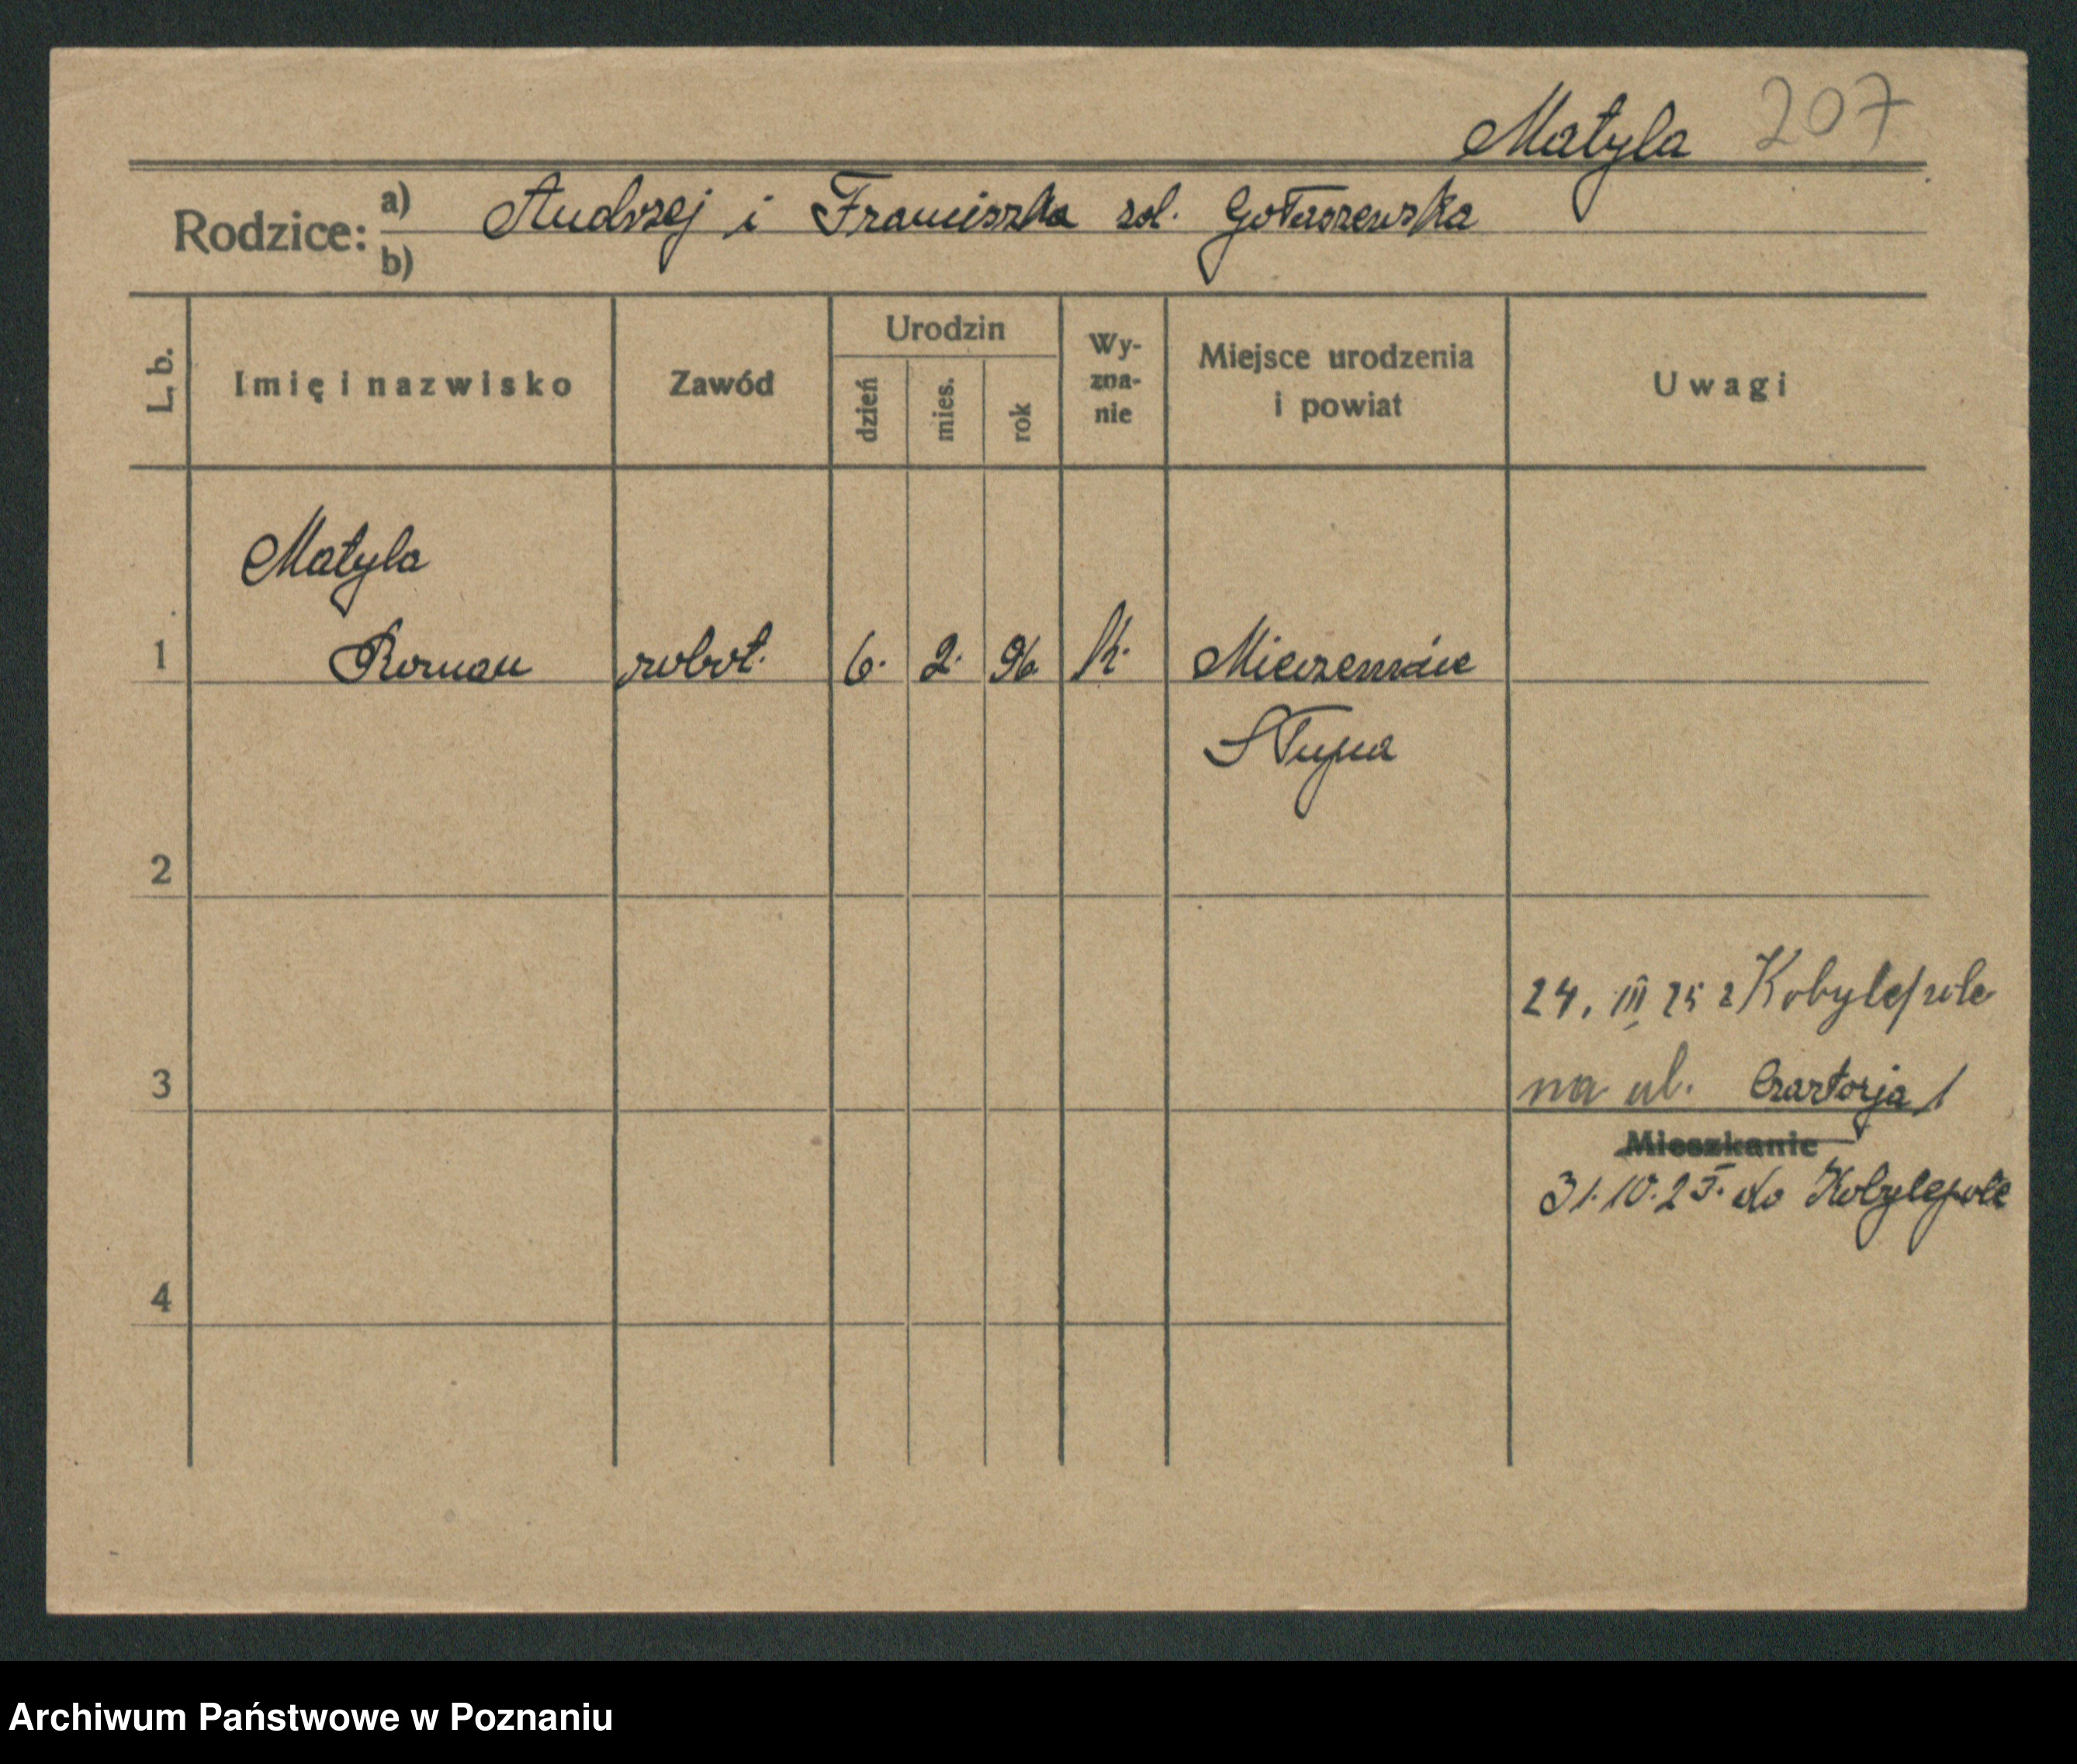 Matyla 207
Rodzice: a) Andrzej i Franciszka zol. Gołaszewska
b)
L. b. Imię i nazwisko Zawód Urodzin dzień mies. rok Wy-zna-nie Miejsce urodzenia i powiat Uwagi
Matyla
1 Roman robot. 6. 2. 96 k.
Słupca
2
24. III 25 z Kobylepole
3 na ul. Czartorja 1
Mieszkanie
31.10.25. do Kobylepole
4
Archiwum Państwowe w Poznaniu